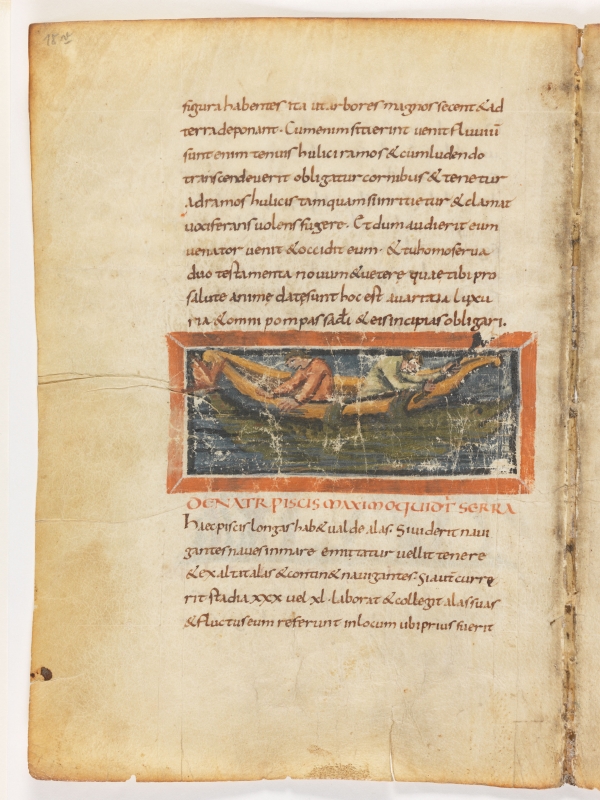 figura habentes ita ut arbores magnos secent & ad
terra deponant. Cum enim sitierint venit fluuiū
sunt enim tenuis huliciramos & cum ludendo
transcendeverit obligatur cornibus & tenetur
ad ramos hulicis tamquam sinritietur & clamat
vociferans volens fugere. Et dum audierit eum
venator venit & occidit eum. & tu homo serva
duo testamenta novum & vetere quae tibi pro
salute anime date sunt hoc est avaritia luxu
ria & omni pompas sadi & eis incipias obligari.
DE NATR PISCIS MAXIMO QUI DT SERRA
Haec piscis longas hab& valde alas. Si viderit navi
gantes naves in mare emittatur vellit tenere
& exaltit alas & contin& navigantes. Si autē curre
rit stadia xxx vel xl. laborat & collegit alas suas
& fluctus eum referunt in locum ubi prius fuerit